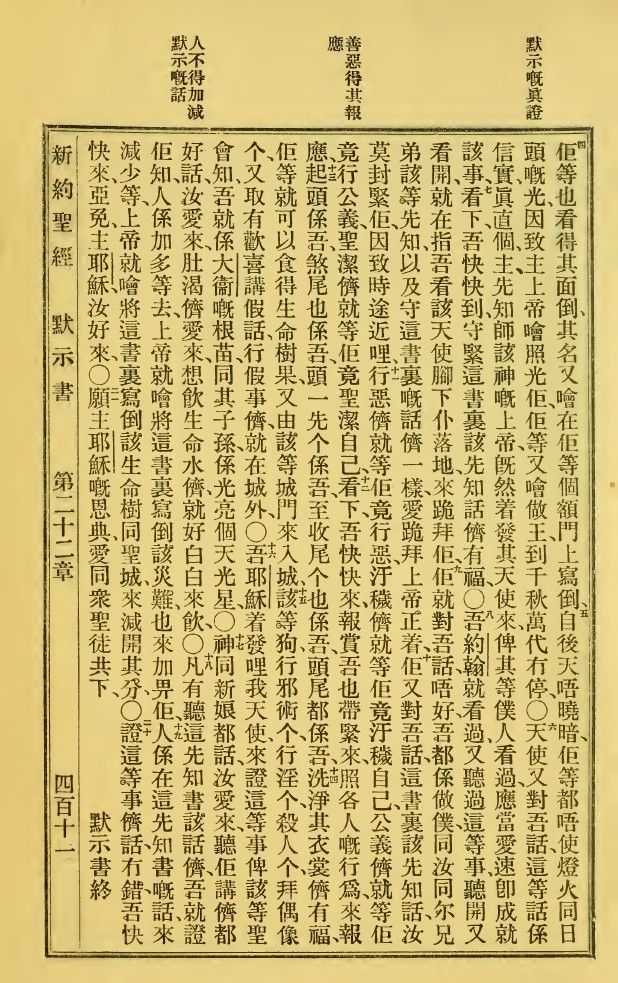 默示嘅真證
善惡得其報
應
人不得加減
默示嘅話
四佢等也看得其面倒、其名又噲在佢等個額門上寫倒、五自後天唔曉暗、佢等都唔使燈火同日
頭嘅光因致主上帝噲照光佢、佢等又噲做王到千秋萬代冇停、〇六天使又對吾話這等話係
信實眞直個、主先知師該神嘅上帝旣然着發其天使來俾其等僕人看過應當愛速卽成就
該事、七看下、吾快快到、守緊這書裏該先知話儕有福、〇八吾約翰就看過、又聽過這等事、聽開又
看開、就在指吾看該天使腳下仆落地來跪拜佢、九佢就對吾話、唔好、吾都係做僕、同汝同尔兄
弟該等先知、以及守這書裏嘅話儕一樣、愛跪拜上帝正着、十佢又對吾話、這書裏該先知話汝
莫封緊佢、因致時途近哩、十一行惡儕就等佢竟行惡、汙穢儕就等佢竟汙穢自己、公義儕就等佢
竟行公義、聖潔儕就等佢竟聖潔自己、十二看下、吾快快來、報賞吾也帶緊來、照各人嘅行爲來報
應、十三起頭係吾、煞尾也係吾、頭一先个係吾、至收尾个也係吾、頭尾都係吾、十四洗淨其衣裳儕有福、
佢等就可以食得生命樹果、又由該等城門來入城、十五該等狗、行邪術个、行淫个、殺人个、拜偶像
个、又取有歡喜講假話、行假事儕、就在城外、〇十六吾耶穌着發哩我天使來證這等事俾該等聖
會知、吾就係大衞嘅根苗同其子孫、係光亮個天光星、〇十七神同新娘都話、汝愛來、聽佢講儕都
好話、汝愛來、肚渴儕愛來、想飮生命水儕、就好白白來飮、〇十八凡有聽這先知書該話儕、吾就證
佢知、人係加多等去、上帝就噲將這書裏寫倒該災難也來加畀佢、十九人係在這先知書嘅話來
減少等、上帝就噲將這書裏寫倒該生命樹、同聖城、來減開其分、〇二十證這等事儕話、冇錯、吾快
快來、亞孟、主耶穌汝好來、〇二一願主耶穌嘅恩典、愛同衆聖徒共下、
默示書終
新約聖經 默示書 第二十二章 四百十一